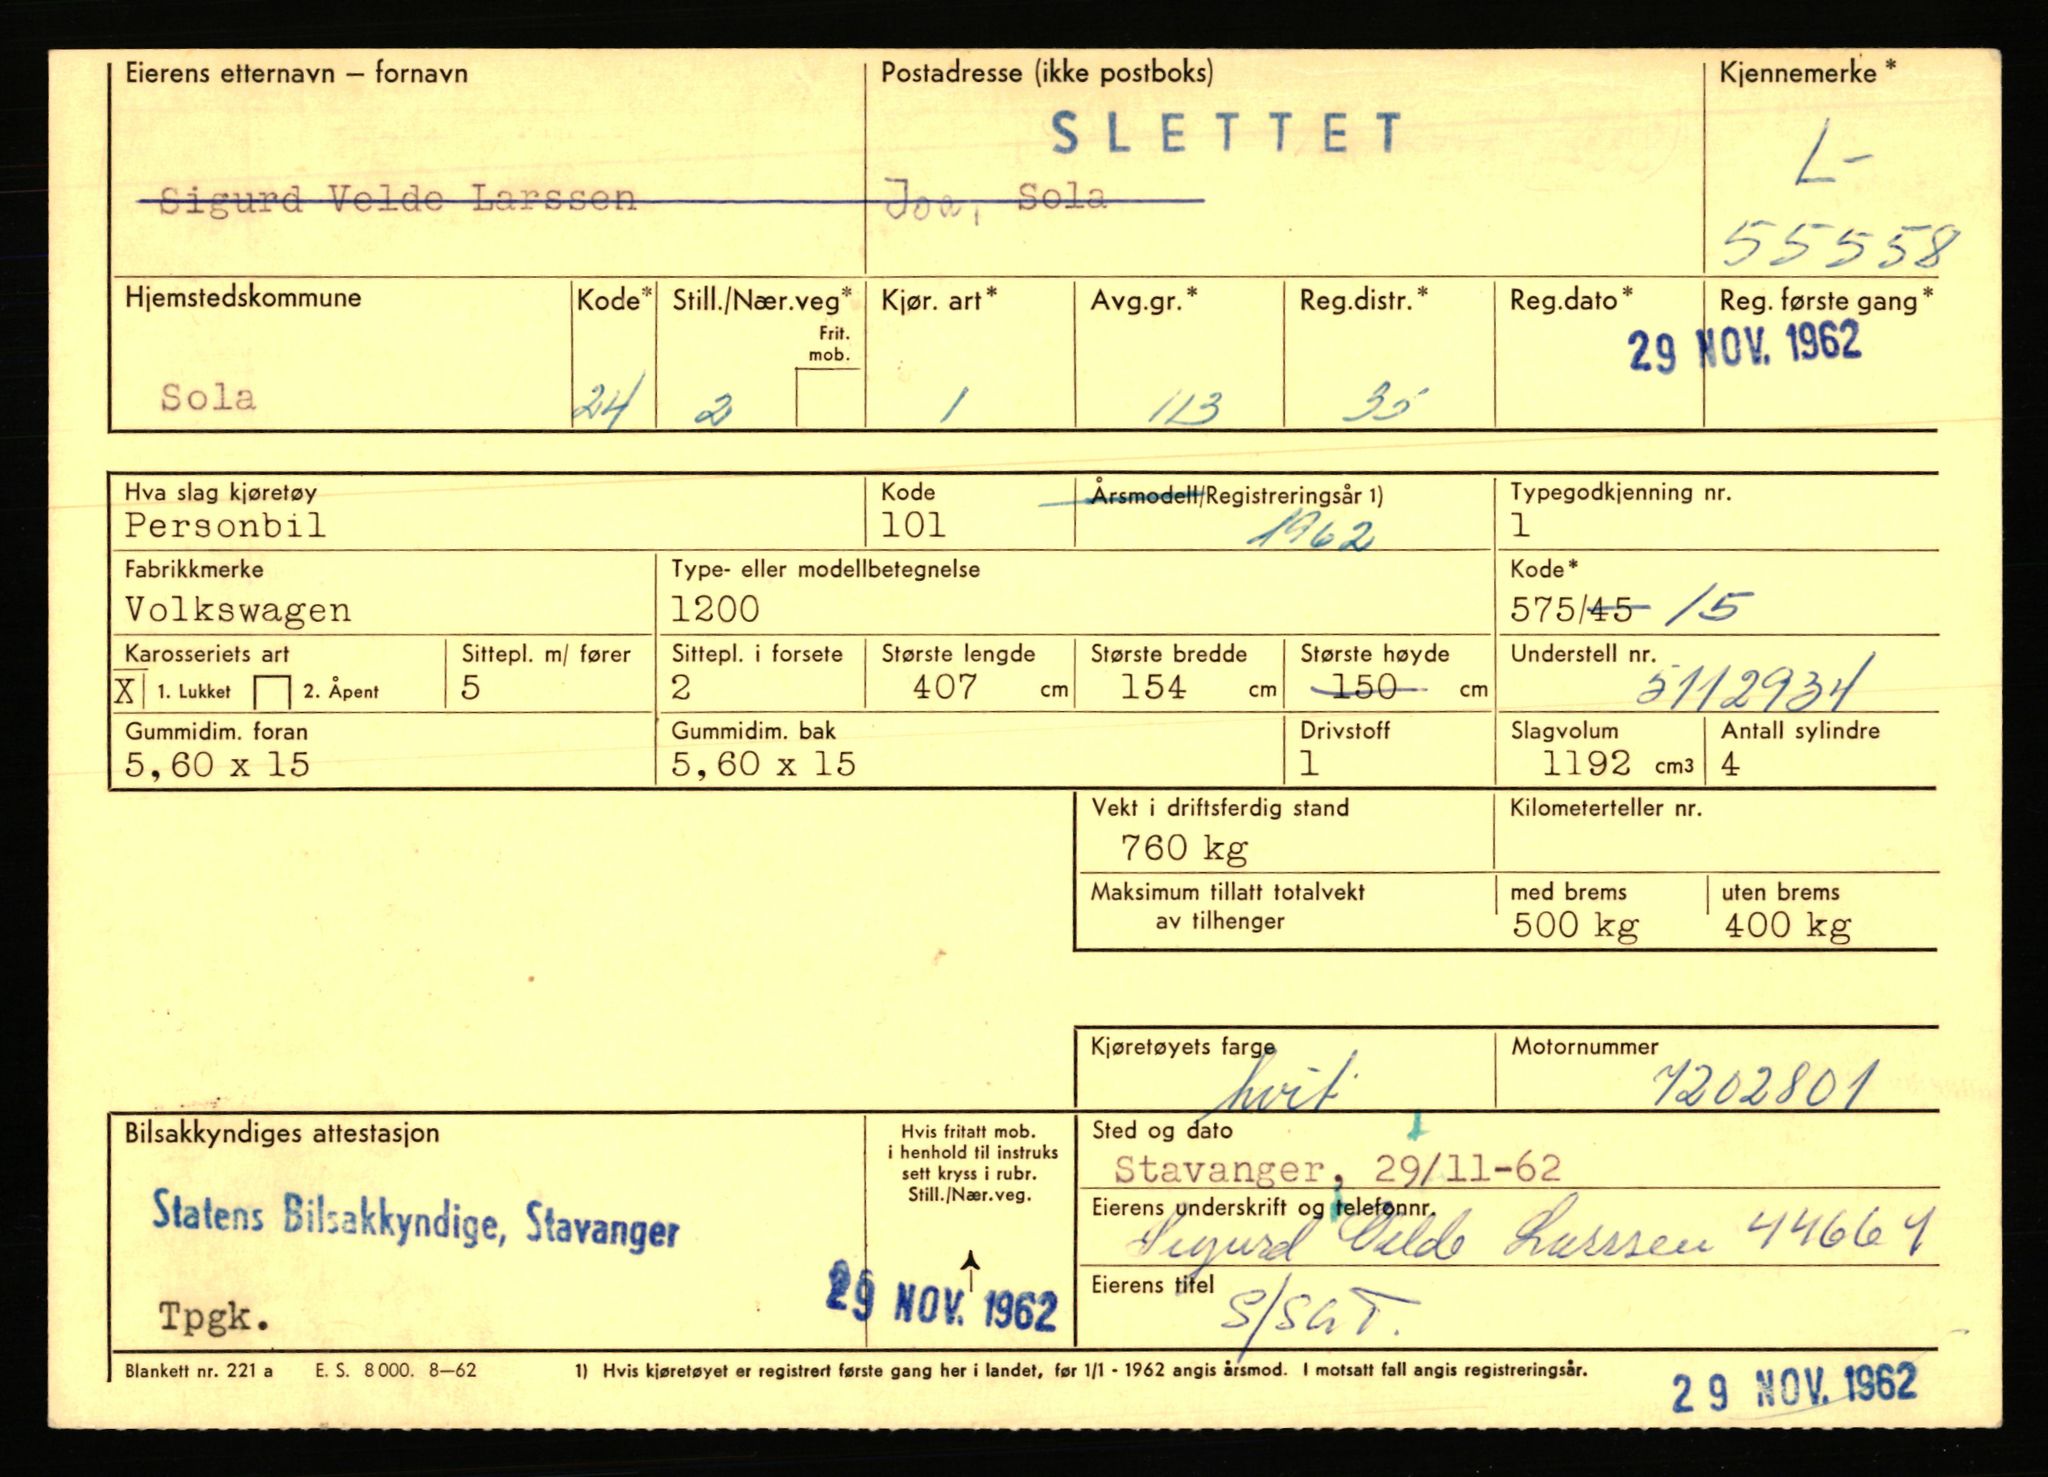 Eierens etternavn – fornavn Postadresse (ikke postboks) Kjennemerke*
SLETTET
L-
Sigurd Velde Larssen Joa, Sola
55558
Hjemstedskommune Kode* Still./Nær.veg* Kjør. art* Avg.gr.* Reg.distr.* Reg.dato* Reg. første gang*
Frit. mob.
29 NOV. 1962
Sola 24 2 1 113 35
Hva slag kjøretøy Kode Årsmodell/Registreringsår 1) Typegodkjenning nr.
Personbil 101 1962 1
Fabrikkmerke Type- eller modellbetegnelse Kode*
Volkswagen 1200 575/45 15
Karosseriets art Sittepl. m/ fører Sittepl. i forsete Største lengde Største bredde Største høyde Understell nr.
X 1. Lukket 2. Åpent 5 2 407 cm 154 cm 150 cm 5112934
Gummidim. foran Gummidim. bak Drivstoff Slagvolum Antall sylindre
5,60 x 15 5,60 x 15 1 1192 cm3 4
Vekt i driftsferdig stand Kilometerteller nr.
760 kg
Maksimum tillatt totalvekt med brems uten brems
av tilhenger 500 kg 400 kg
Kjøretøyets farge Motornummer
hvit 7202801
Bilsakkyndiges attestasjon
Hvis fritatt mob.
i henhold til instruks
sett kryss i rubr.
Still./Nær.veg.
Sted og dato
Stavanger, 29/11-62
Statens Bilsakkyndige, Stavanger
Eierens underskrift og telefonnr.
Sigurd Velde Larssen 44664
Eierens titel
S/SGT.
Tpgk.
29 NOV. 1962
Blankett nr. 221 a E. S. 8000. 8–62 1) Hvis kjøretøyet er registrert første gang her i landet, før 1/1 - 1962 angis årsmod. I motsatt fall angis registreringsår.
29 NOV. 1962